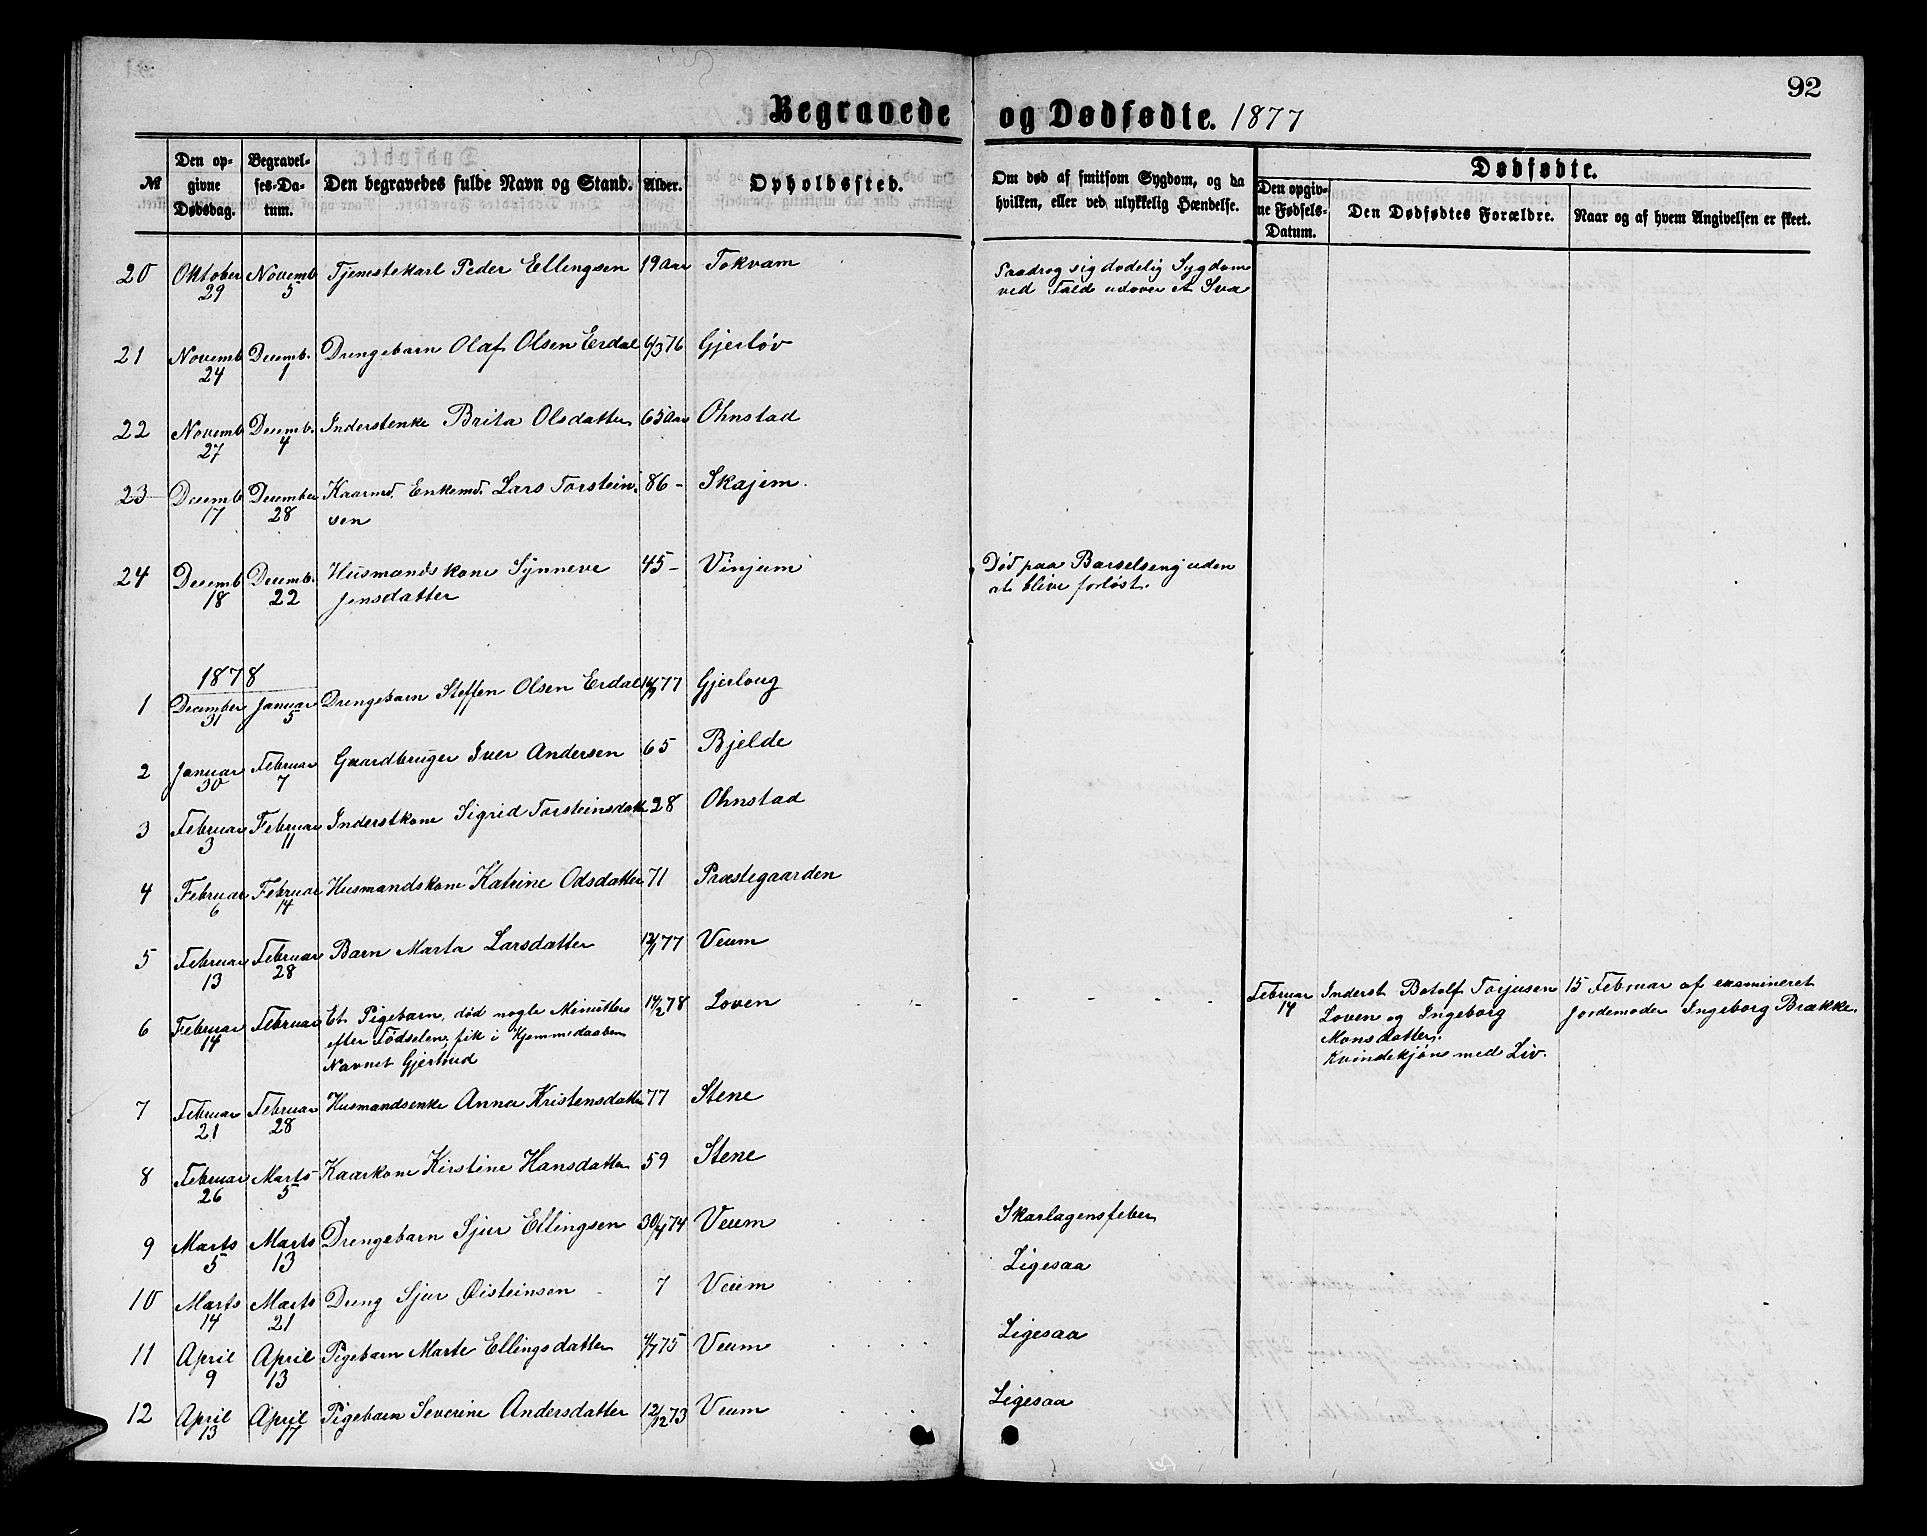 92
Begravede og Dødfødte. 1877
№
Den opgivne Dødsdag.
Begravelses-Datum.
Den begravedes fulde Navn og Stand.
Alder.
Opholdssted.
Om død af smitsom Sygdom, og da hvilken, eller ved ulykkelig Hændelse.
Dødfødte.
Den opgivne Fødsels-Datum.
Den Dødfødtes Forældre.
Naar og af hvem Angivelsen er skeet.
20 Oktober 29 Novemb 5 Tjenestekarl Peder Ellingsen 19 Aar Tokvam Paadrog sig dødelig Sygdom
ved Fald udover et Sva
21 Novemb 24 Decemb. 1 Drengebarn Olaf Olsen Erdal 6/3 76 Gjerløv
22 Novemb 27 Decemb. 4 Inderstenke Brita Olsdatter 65 Aar Ohnstad
23 Decemb 17 December 28 Kaarmd. Enkemd. Lars Torstein- 86 - Skajem.
sen
24 Decemb 18 Decemb. 22 Husmandskone Synneve 45 - Vinjum Død paa Barselseng uden
Jensdatter at blive forløst.
1878
1 December 31 Januar 5 Drengebarn Steffen Olsen Erdal 77 Gjerloug
2 Januar 30 Februar 7 Gaardbruger Iver Andersen 65 Bjelde
3 Februar 3 Februar 11 Inderstkone Sigrid Torsteinsdatt 28 Ohnstad
4 Februar 6 Februar 14 Husmandskone Katrine Odsdatter 71 Præstegaarden
5 Februar 13 Februar 28 Barn Marta Larsdatter 77 Veum
6 Februar 14 Februar Et Pigebarn, død nogle Minutter 14/2 78 Loven - - - - Februar 14 Inderst Botolf Torjusen 15 Februar af examineret
efter Fødselen, fik i Hjemmedaaben Loven og Ingeborg Jordemoder Ingeborg Brække.
Navnet Gjertrud Monsdatter.
Kvindekjøn med Liv.
7 Februar 21 Februar 28 Husmandsenke Anna Kristensdatter 77 Stene
8 Februar 26 Marts 5 Kaarkone Kirstine Hansdatter 59 Stene
9 Marts 5 Marts 13 Drengebarn Sjur Ellingsen 74 Veum Skarlagensfeber
10 Marts 14 Marts 21 Dreng Sjur Øisteinsen 7 Veum Ligesaa
11 April 9 April 13 Pigebarn Marte Ellingsdatter 75 Veum Ligesaa
12 April 13 April 17 Pigebarn Severine Andersdatter 12/12 73 Veum Ligesaa